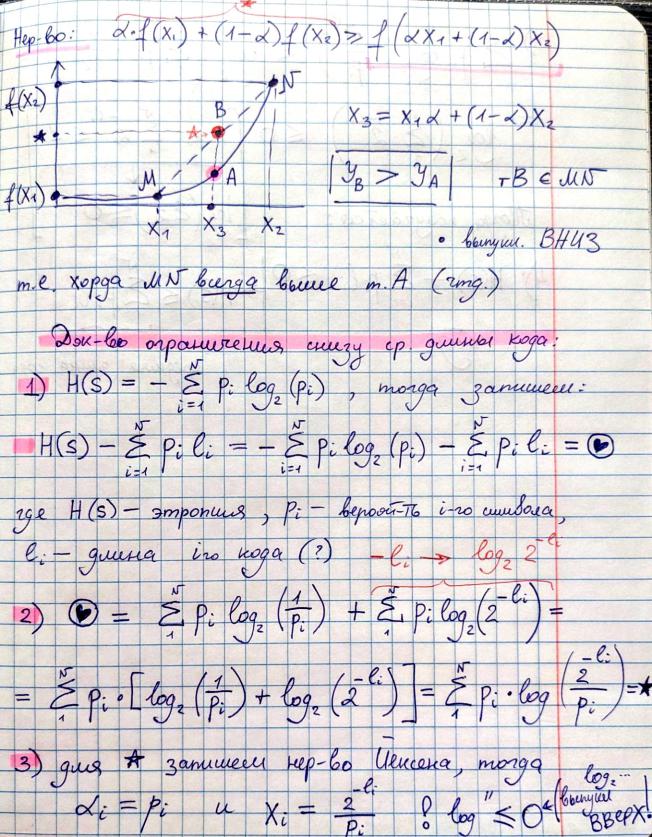 Нер-во: α·f(x₁) + (1-α) f(x₂) ≥ f(αx₁ + (1-α)x₂)
f(x₂)
N
B
x₃ = x₁α + (1-α)x₂
★
M
A
y_B > y_A
тB ∈ MN
f(x₁)
x₁ x₃ x₂
• выпукл. ВНИЗ
т.е. хорда MN всегда выше т. A (чтд.)
Док-во ограничения снизу ср. длины кода:
1) H(S) = - Σ_{i=1}^{N} pᵢ log₂(pᵢ) , тогда запишем:
H(S) - Σ_{i=1}^{N} pᵢ lᵢ = - Σ_{i=1}^{N} pᵢ log₂(pᵢ) - Σ_{i=1}^{N} pᵢ lᵢ = ♥
где H(S) - этропия, pᵢ - вероят-ть i-го символа,
lᵢ - длина iго кода (?) -lᵢ → log₂ 2^{-lᵢ}
2) ♥ = Σ_{1}^{N} pᵢ log₂(1/pᵢ) + Σ_{1}^{N} pᵢ log₂(2^{-lᵢ}) =
= Σ_{1}^{N} pᵢ·[log₂(1/pᵢ) + log₂(2^{-lᵢ})] = Σ_{1}^{N} pᵢ·log(2^{-lᵢ}/pᵢ) = ★
3) для ★ запишем нер-во Йенсена, тогда
αᵢ = pᵢ и xᵢ = 2^{-lᵢ}/pᵢ ! log'' ≤ 0 (log₂... выпукл ВВЕРХ)